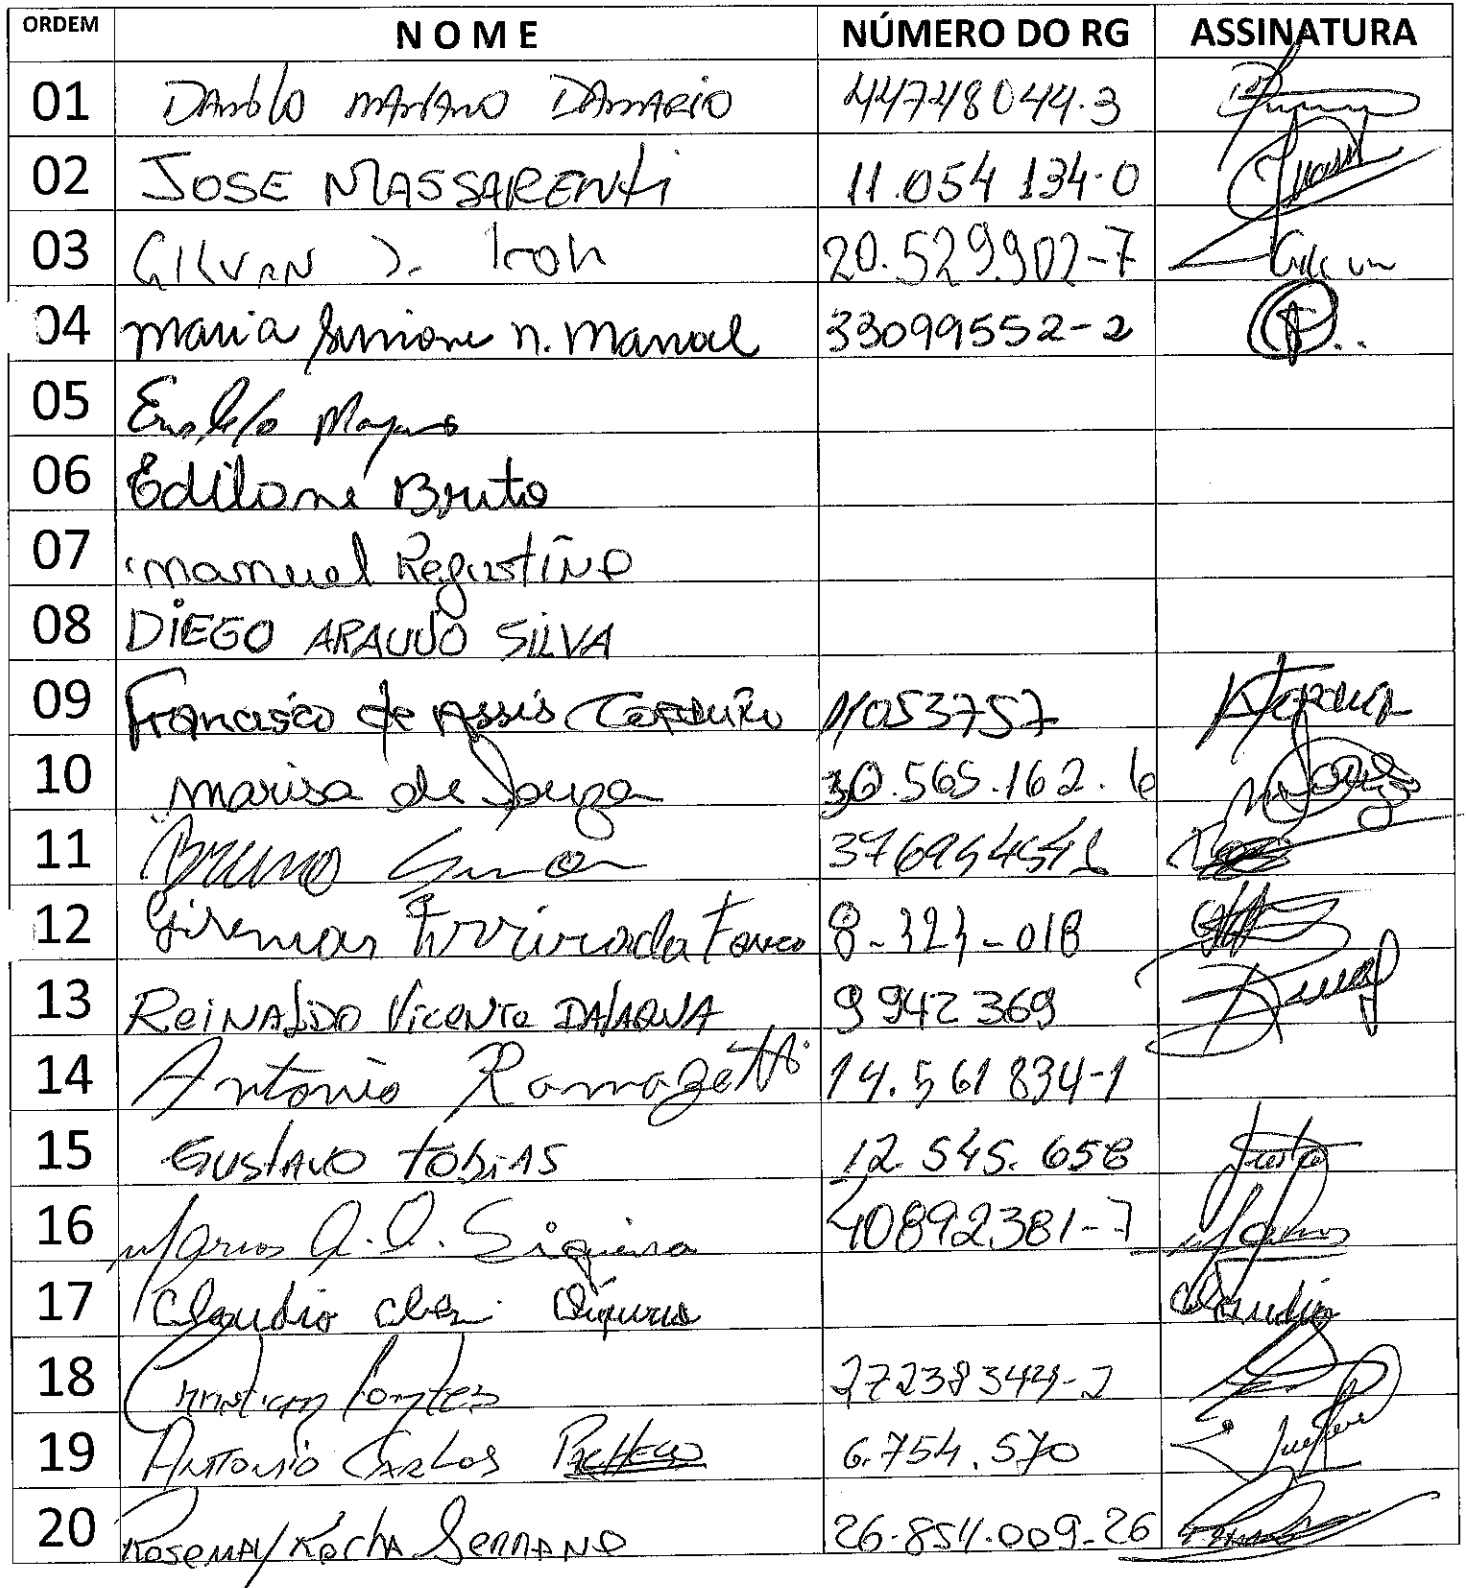 ORDEM NOME NÚMERO DO RG ASSINATURA
01 Danilo Mariano Damario 44748044-3
02 JOSE MASSARENTi 11.054 134-0
03 GILVAN J. 20.529.902-7 Gilvan
04 Maria Simone N. Manoel 33099552-2
05
06 Edilane Bruto
07 manuel
08 DIEGO ARAUJO SILVA
09 Francisco de Assis 11053757
10 Marisa de Souza 30.565.162.6
11 BRUNO
12 8-323-018
13 ReiNALDO Vicente DALAQUA 9942369
14 Antonio Ramazotti 14.561834-1
15 GUSTAVO TOBIAS 12.545.658
16 Marcos A. O. Siqueira 40892381-7 Marcos
17 Claudio Claudio
18 Christian Pontes 27238344-2
19 Antonio Carlos PACHECO 6.754.570
20 Rosemay Rocha Serrano 26.854.009-26